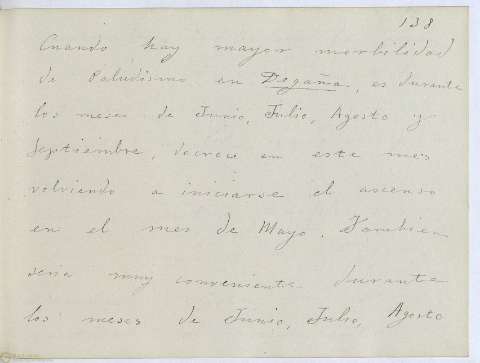 138
Cuando hay mayor morbilidad
de Paludismo en Dogaña, es durante
los meses de Junio, Julio, Agosto y
Septiembre, decrece en este mes
volviendo a iniciarse el ascenso
en el mes de Mayo. Tambien
seria muy conveniente durante
los meses de Junio, Julio, Agosto